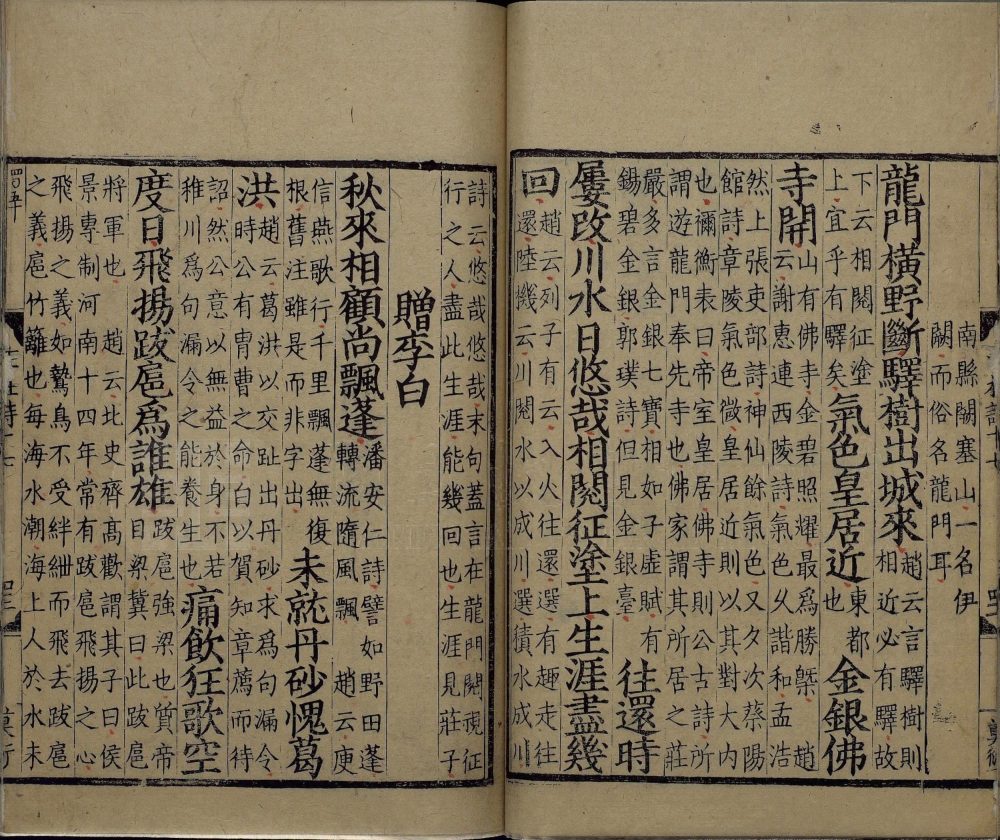 南縣闕塞山一名伊
闕而俗名龍門耳
龍門橫野斷驛樹出城來趙云言驛樹則
相近必有驛故
下云相閱征塗
上宜乎有驛矣氣色皇居近東都
也金銀佛
寺開山有佛寺金碧照耀最爲勝槩 趙
云謝惠連西陵詩氣色久諧和孟浩
然上張吏部詩神仙餘氣色又夕次蔡陽
館詩章陵氣色微皇居近則以其對大内
也禰衡表曰帝室皇居佛寺則公古詩所
謂遊龍門奉先寺也佛家謂其所居之莊
嚴多言金銀七寶相如子虛賦有
錫碧金銀郭璞詩但見金銀臺往還時
屢改川水日悠哉相閱征塗上生涯盡幾
回趙云列子有云入火往還選有趣走往
還陸機云川閱水以成川選積水成川
詩云悠哉悠哉末句蓋言在龍門閱視征
行之人盡此生涯能幾回也生涯見莊子
贈李白
秋來相顧尚飄蓬潘安仁詩譬如野田蓬
轉流隨風飄 趙云庾
信燕歌行千里飄蓬無復
根舊注雖是而非字出未就丹砂愧葛
洪趙云葛洪以交趾出丹砂求爲句漏令
時公有冑曹之命白以賀知章薦而待
詔然公意以無益於身不若
稚川爲句漏令之能養生也痛飲狂歌空
度日飛揚跋扈爲誰雄跋扈強梁也質帝
目梁冀曰此跋扈
將軍也 趙云北史齊高歡謂其子曰侯
景專制河南十四年常有跋扈飛揚之心
飛揚之義如鷙鳥不受絆紲而飛去跋扈
之義扈竹籬也每海水潮海上人於水未